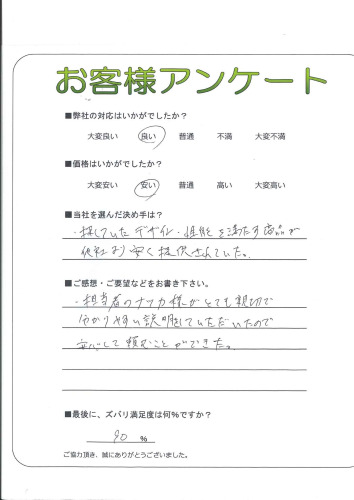 お客様アンケート
■弊社の対応はいかがでしたか?
大変良い 良い 普通 不満 大変不満
■価格はいかがでしたか?
大変安い 安い 普通 高い 大変高い
■当社を選んだ決め手は?
・探していたデザイン・性能を満たす商品が
他社より安く提供されていた。
■ご感想・ご要望などをお書き下さい。
・担当者のナカ様がとても親切で
分かりやすい説明をしていただいたので
安心して頼むことができた。
■最後に、ズバリ満足度は何%ですか?
90 %
ご協力頂き、誠にありがとうございました。